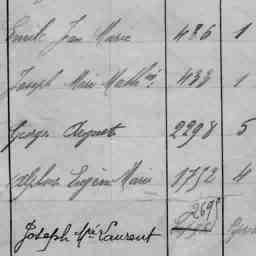 Emile Jean Marie 436 1
Joseph Marie Math 433 1
George August 2298 5
Alphse Eugène Marie 1752 4
Joseph Mie Laurent 269